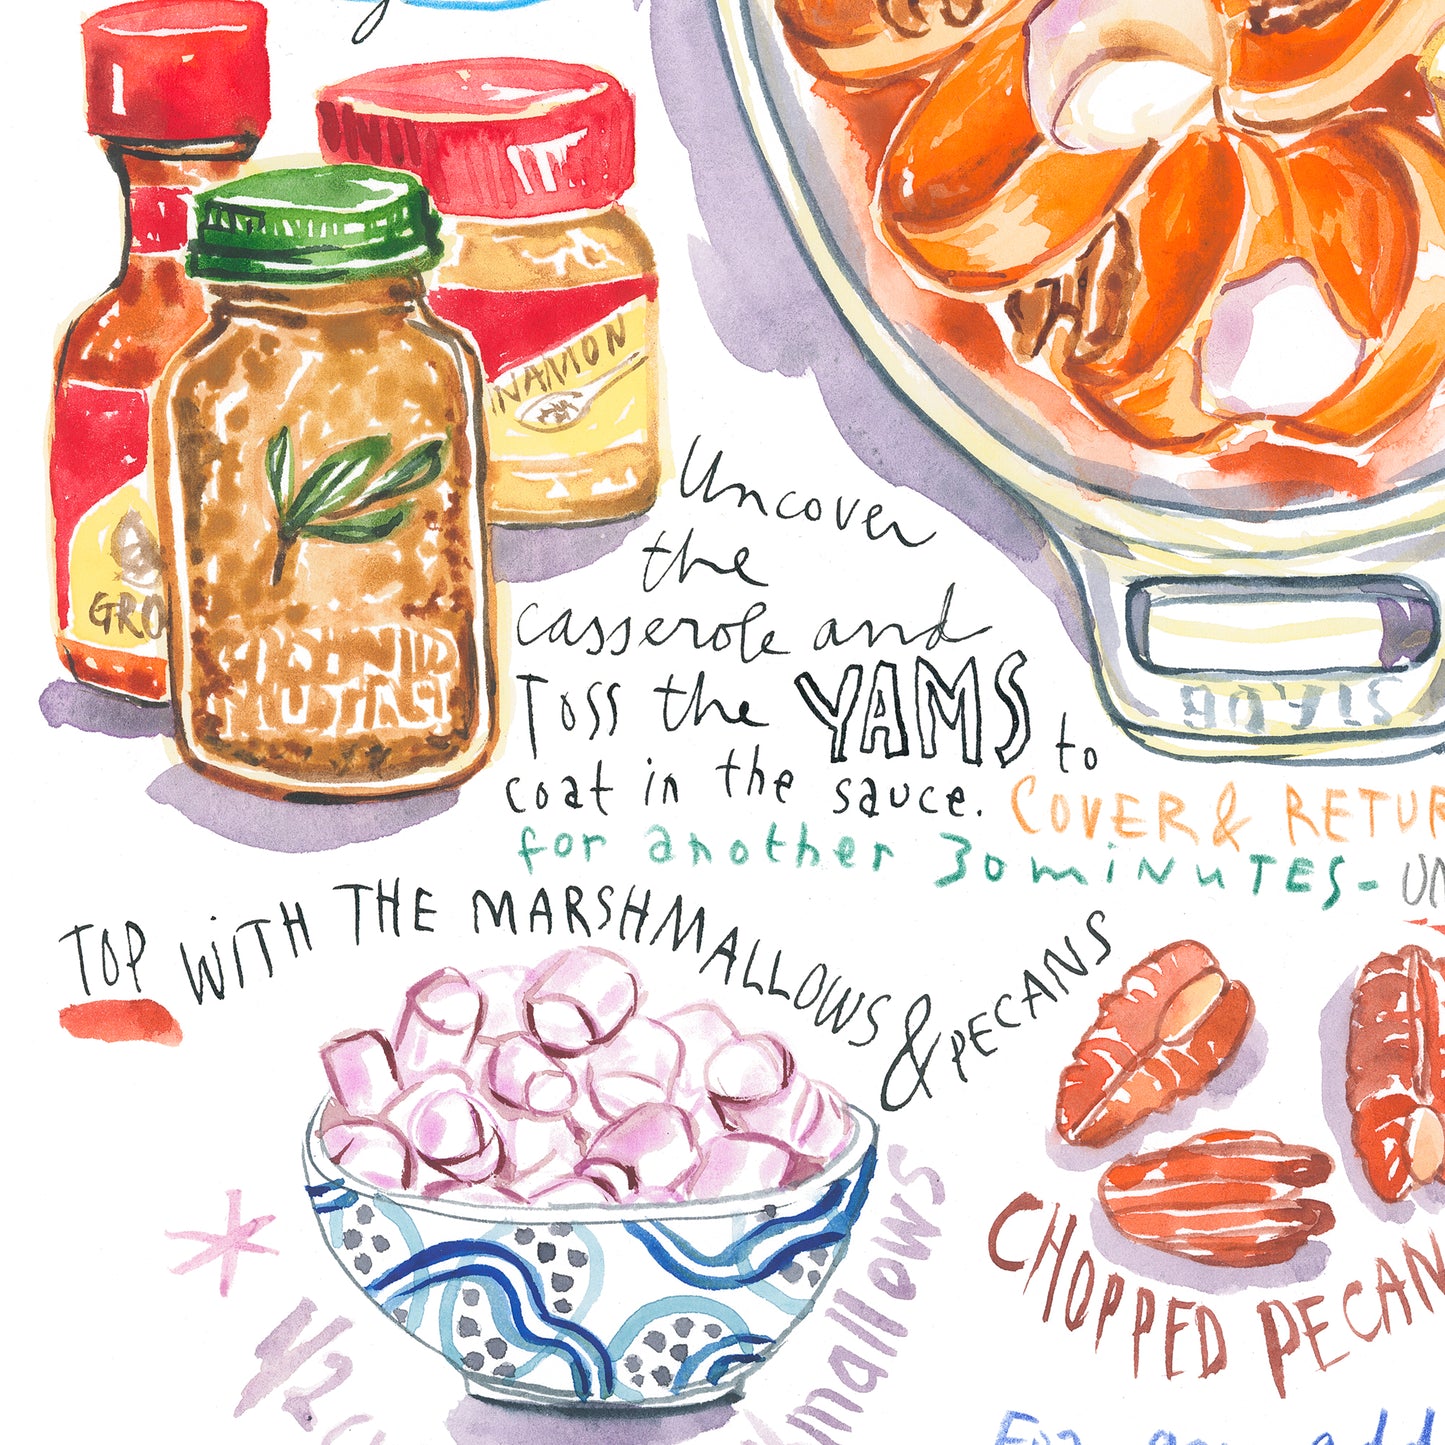 CINNAMON
GRO
GROUND
NUTMEG
Uncover
the
casserole and
Toss the YAMS to
coat in the sauce. COVER & RETUR
for another 30 minutes - UN
TOP WITH THE MARSHMALLOWS & PECANS
CHOPPED PECAN
* 1/2 c
mallows
For